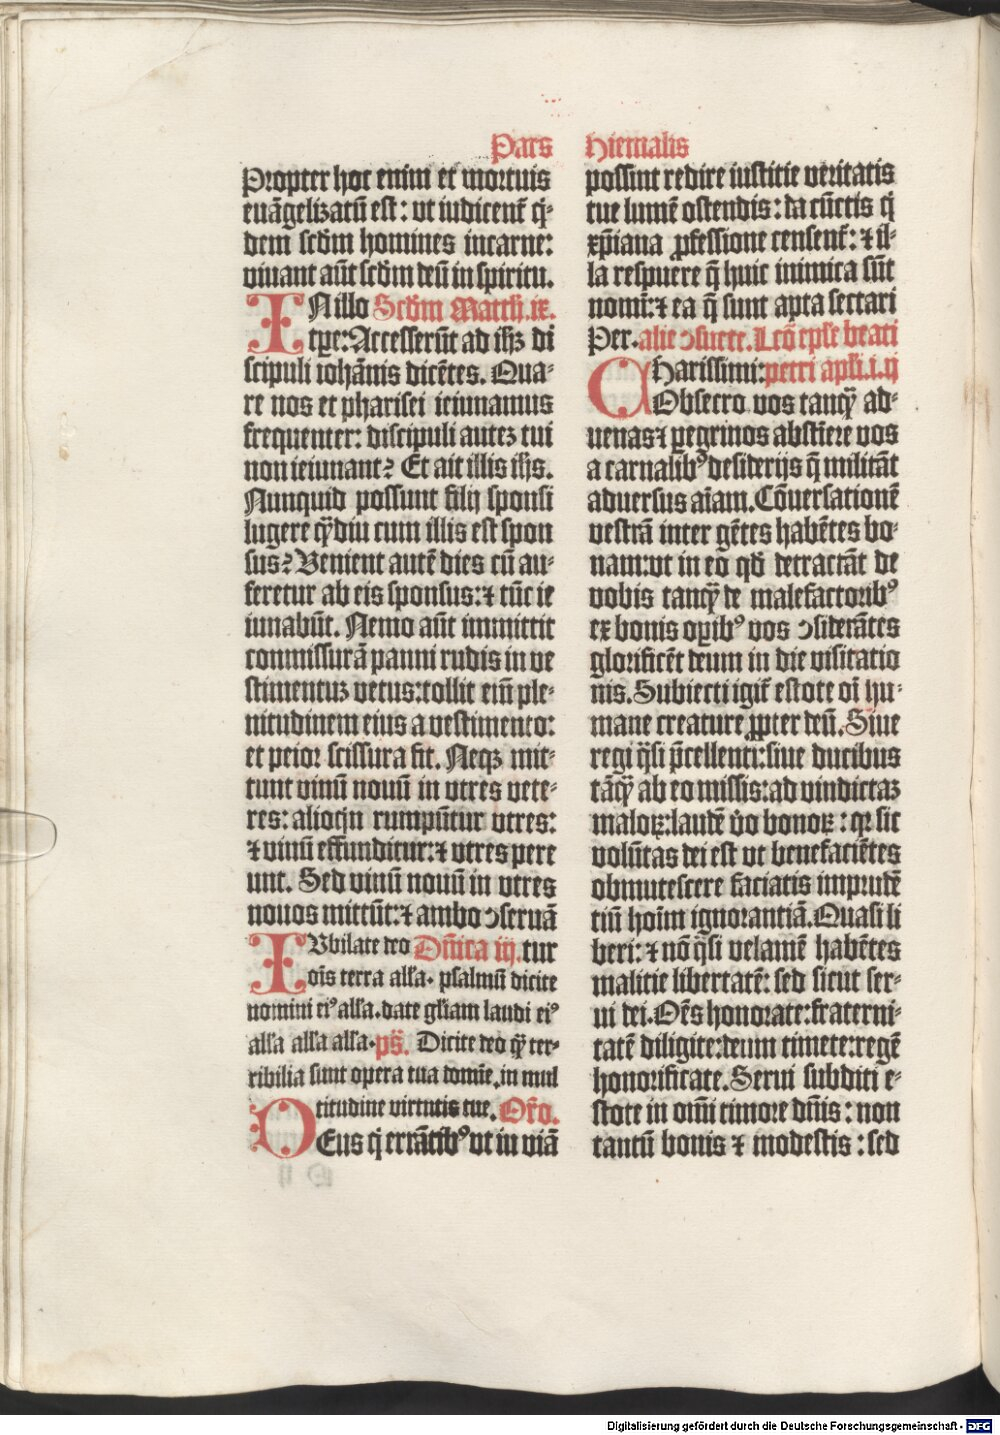 Pars Hiemalis
Propter hoc enim et mortuis
euãgelizatũ est: vt iudicent᷑ q̃-
dem scd̃m homines in carne:
viuant aũt scd̃m deũ in spiritu.
INillo Scd̃m Matth̃. ix.
tꝑe: Accesserũt ad ih̃ꝫ di
scipuli iohãnis dicẽtes. Qua-
re nos et pharisei ieiunamus
frequenter: discipuli auteꝫ tui
non ieiunant? Et ait illis ih̃s.
Nunquid possunt filij sponsi
lugere q̃diu cum illis est spon
sus? Venient autẽ dies cũ au-
feretur ab eis sponsus: ⁊ tũc ie
iunabũt. Nemo aũt immittit
commissurã panni rudis in ve
stimentuꝫ vetus: tollit eni᷑ ple-
nitudinem eius a vestimento:
et peior scissura fit. Neqꝫ mit-
tunt vinũ nouũ in vtres vete-
res: alioq̃n rumpũtur vtres:
⁊ vinũ effunditur: ⁊ vtres pere
unt. Sed vinũ nouũ in vtres
nouos mittũt: ⁊ ambo ↄseruã
IVbilate deo Dñica iij. tur
oĩs terra all̃a. psalmũ dicite
nomini ei⁹ all̃a. date gl̃iam laudi ei⁹
all̃a all̃a all̃a. ps̃. Dicite deo q̃ ter-
ribilia sunt opera tua domĩe, in mul
titudine virtutis tue. Or̃o.
DEus q̃ errãtib⁹ vt in viã
possint redire iustitie veritatis
tue lumẽ ostendis: da cũctis q̃
xp̃iana ꝓfessione censent᷑: ⁊ il-
la respuere q̃ huic inimica sũt
nomĩ: ⁊ ea q̃ sunt apta sectari
Per. alie ↄsuete. Lcõ ep̃le beati
CHarissimi: petri apl̃i. i. ij
Obsecro vos tanq̃ ad-
uenas ⁊ ꝑegrinos abstĩere vos
a carnalib⁹ desiderijs q̃ militãt
aduersus aĩam. Cõuersationẽ
vestrã inter gẽtes habẽtes bo-
nam: vt in eo qd̃ detractãt de
vobis tanq̃ de malefactorib⁹
ex bonis oꝑib⁹ vos ↄsiderãtes
glorificẽt deum in die visitatio
nis. Subiecti igit᷑ estote oĩ hu-
mane creature ꝓpter deũ. Siue
regi q̃si p̃cellenti: siue ducibus
tãq̃ ab eo missis: ad vindictaꝫ
maloꝝ: laudẽ v̉o bonoꝝ: qꝛ sic
volũtas dei est vt benefaciẽtes
obmutescere faciatis imprudẽ
tiũ hoĩm ignorantiã. Quasi li
beri: ⁊ nõ q̃si velamẽ habẽtes
malitie libertatẽ: sed sicut ser-
ui dei. Oẽs honorate: fraterni-
tatẽ diligite: deum timete: regẽ
honorificate. Serui subditi e-
stote in omĩ timore dñis: non
tantũ bonis ⁊ modestis: sed
Digitalisierung gefördert durch die Deutsche Forschungsgemeinschaft - DFG